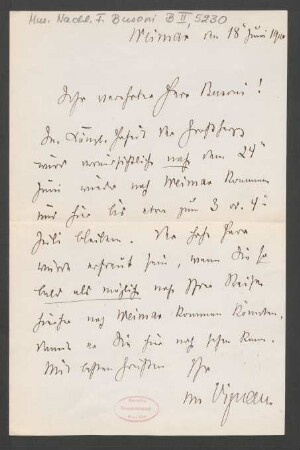 Mus. Nachl. F. Busoni B II, 5230
Weimar den 18ⁿ Juni 190
Sehr verehrter Herr Busoni!
Se. Königl. Hoheit der Großherzog
wird voraussichtlich nach dem 24ⁿ
Juni wieder nach Weimar kommen
und hier bis etwa zum 3 od. 4ⁿ
Juli bleiben. Der hohe Herr
würde erfreut sein, wenn Sie so
bald als möglich nach Ihrer Reise
hierher nach Weimar kommen könnten,
damit er Sie hier noch sehen kann.
Mit besten Grüßen Ihr
von Vignau.